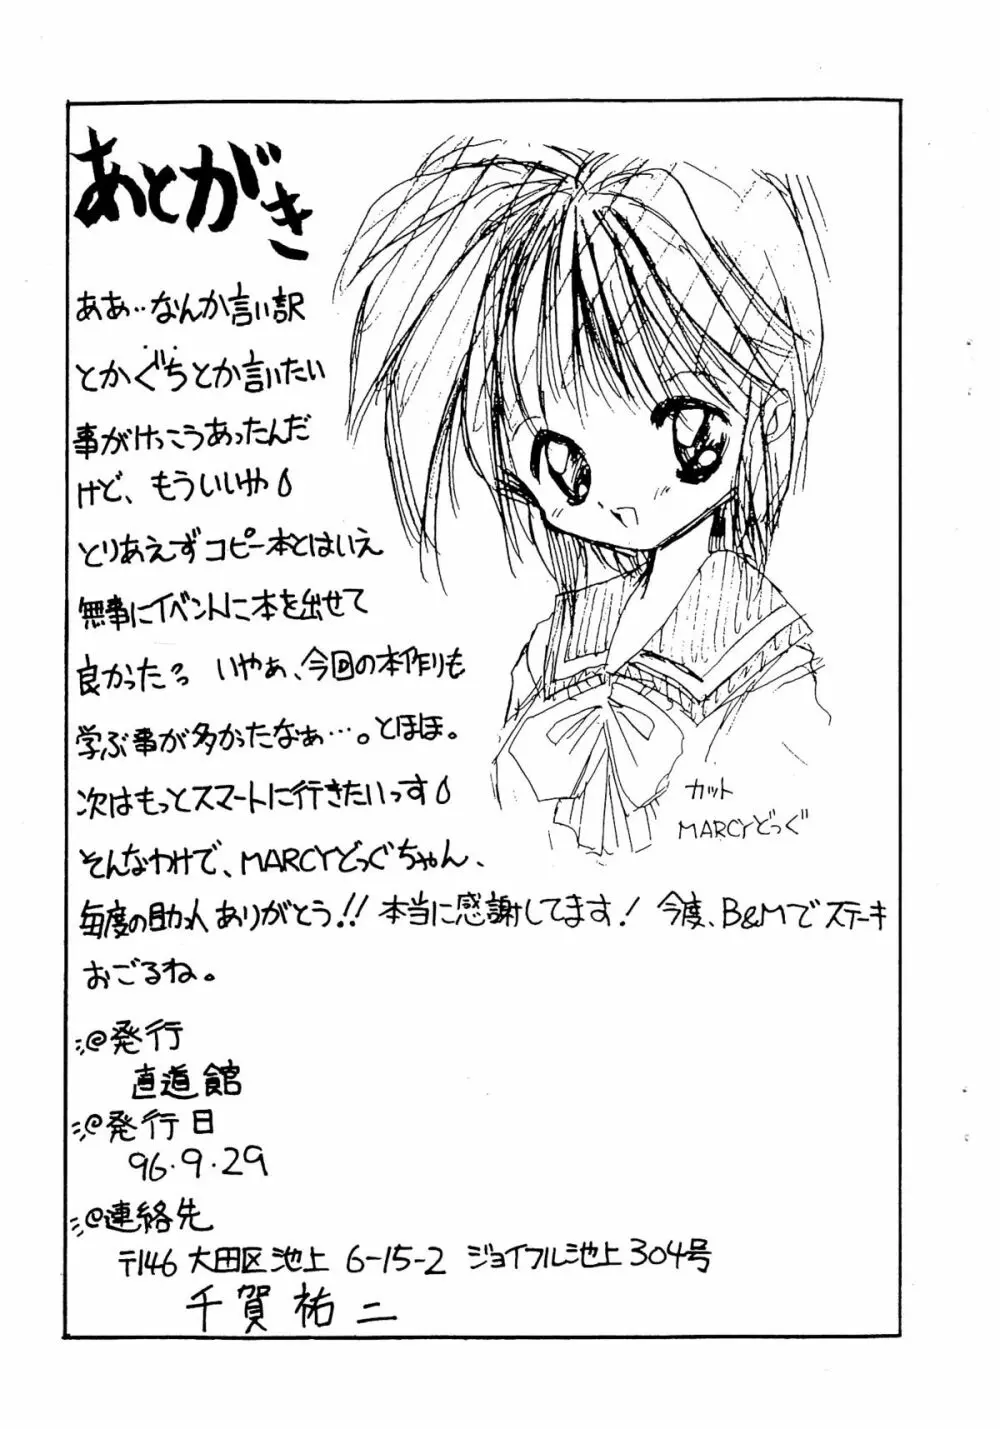 あとがき
ああ‥なんか言い訳
とかぐちとか言いたい
事がけっこうあったんだ
けど、もういいや
とりあえずコピー本とはいえ
無事にイベントに本を出せて
良かった〜 いやぁ、今回の本作りも
学ぶ事が多かったなぁ…。とほほ。
次はもっとスマートに行きたいっす
そんなわけで、MARCYどっぐちゃん、
毎度の助っ人ありがとう!! 本当に感謝してます! 今度、B&Mでステーキ
おごるね。
カット
MARCYどっぐ
@発行
直道館
@発行日
96・9・29
@連絡先
〒146 大田区池上 6-15-2 ジョイフル池上304号
千賀祐二